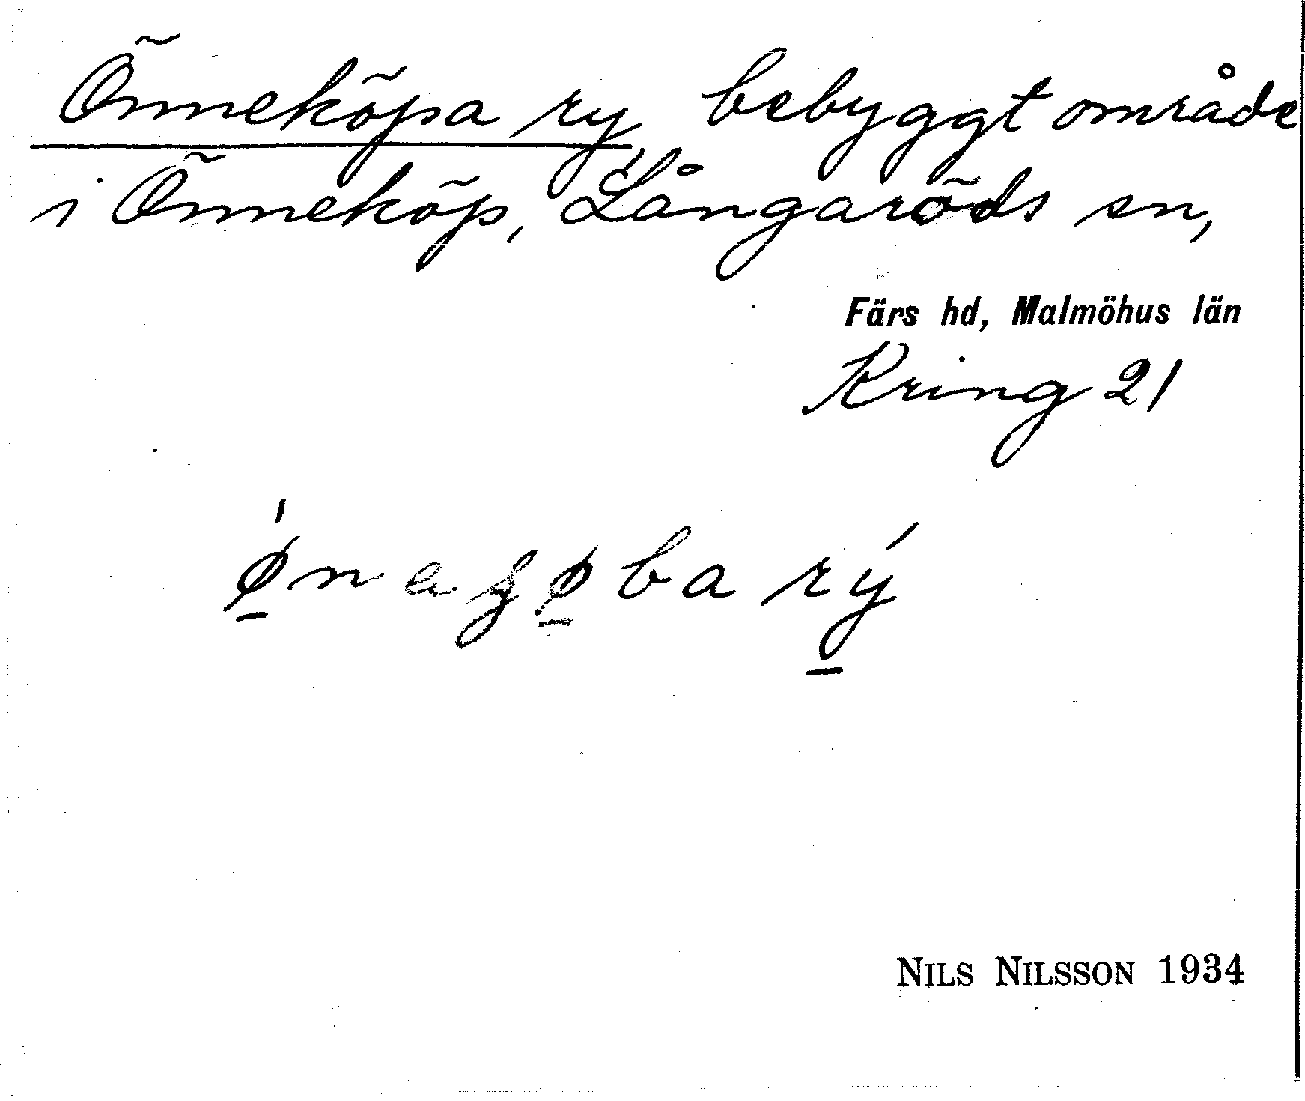 Önneköpa ry bebyggt område
i Önneköp, Långaröds sn,
Färs hd, Malmöhus län
Kring 21
NILS NILSSON 1934